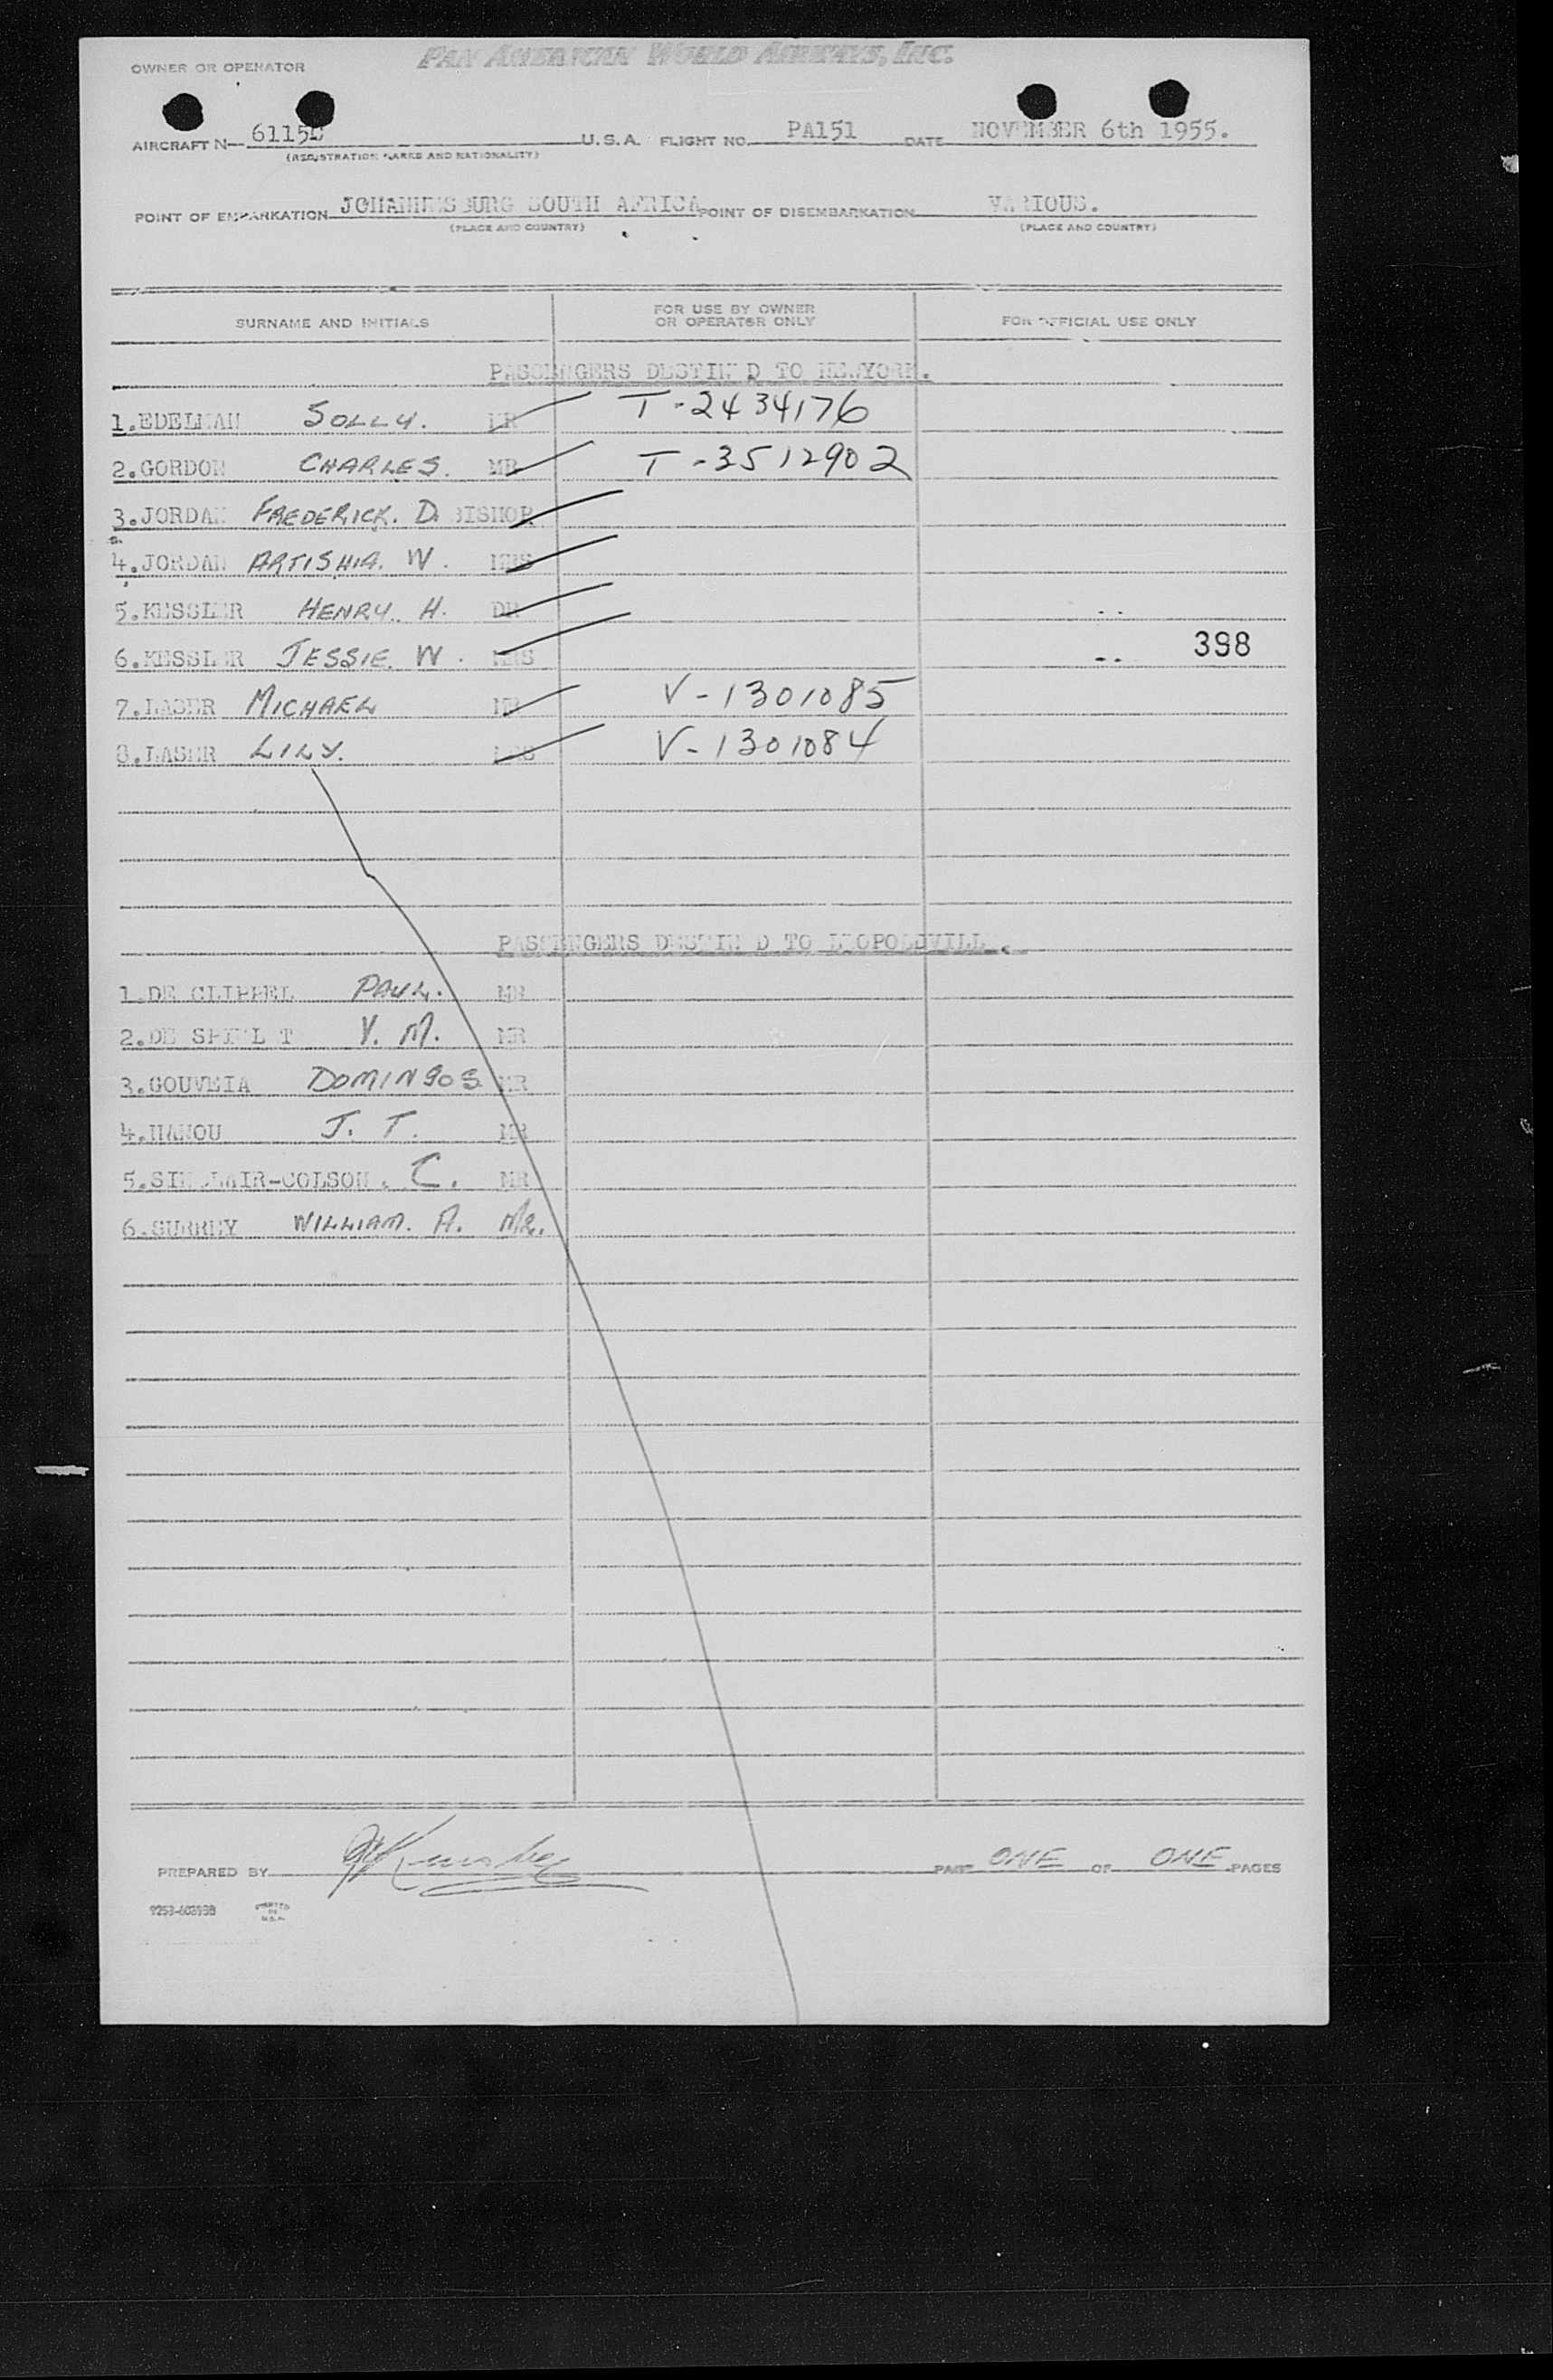 PAN AMERICAN WORLD AIRWAYS, INC.
OWNER OR OPERATOR
AIRCRAFT N- 6115C U.S.A. FLIGHT NO. PA151 DATE NOVEMBER 6th 1955.
(REGISTRATION MARKS AND NATIONALITY)
POINT OF EMBARKATION JOHANNESBURG SOUTH AFRICA POINT OF DISEMBARKATION VARIOUS.
(PLACE AND COUNTRY) (PLACE AND COUNTRY)
SURNAME AND INITIALS FOR USE BY OWNER OR OPERATOR ONLY FOR OFFICIAL USE ONLY
PASSENGERS DESTINED TO NEWYORK.
1.EDELMAN SOLLY. MR T-2434176
2.GORDON CHARLES. MR T-3512902
3.JORDAN FREDERICK. D. BISHOP
4.JORDAN ARTISHIA. W. MRS
5.KESSLER HENRY. H. DR
6.KESSLER JESSIE. W. MRS 398
7.LASER MICHAEL MR V-1301085
8.LASER LILY. MRS V-1301084
PASSENGERS DESTINED TO LEOPOLDVILLE.
1.DE CLIPPEL PAUL. MR
2.DE V. M. MR
3.GOUVEIA DOMINGOS MR
4.HANOU J. T. MR
5.SINCLAIR-COLSON. C. MR
6.SURREY WILLIAM. A. MR.
PREPARED BY PAGE ONE OF ONE PAGES
PRINTED IN U.S.A.